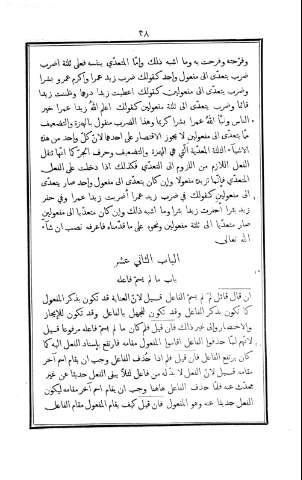 ٣٨
وفرّحته وفرحت به وما اشبه ذلك وامّا المتعدّي بنفسه فعلى ثلثة اضرب
ضرب يتعدّى الى مفعول واحد كقولك ضرب زيد عمرا واكرم عمرو بشرا
وضرب يتعدّى الى مفعولين كقولك اعطيت زيدا درهما وظننت زيدا
قائما وضرب يتعدّى الى ثلثة مفعولين كقولك اعلم اللّه زيدا عمرا خير
الناس ونبّأ اللّه عمرا بشرا كريما وهذا الضرب منقول بالهمزة والتضعيف
ممّا يتعدّى الى مفعولين لا يجوز الاقتصار على احدهما لانّ كلّ واحد من هذه
الاشياء الثلثة المعدّية التي هي الهمزة والتضعيف وحرف الجرّ كما انها تنقل
الفعل اللازم من اللزوم الى التعدّي فكذلك اذا دخلت على الفعل
المتعدّي فإنها تزيده مفعولا وإن كان يتعدّى الى مفعول واحد صار يتعدّى
الى مفعولين كقولك في ضرب زيد عمرا أضربت زيدا عمرا وفي حفر
زيد بئرا أحفرت زيدا بئرا وما اشبه ذلك وإن كان متعدّيا الى مفعولين
صار متعدّيا الى ثلثة مفعولين ونحوه على ما قدّمناه فاعرفه تصب ان شآء
اللّه تعالى
الباب الثاني عشر
باب ما لم يسمّ فاعله
ان قال قائل لِمَ لم يسمّ الفاعل قيل لانّ العناية قد تكون بذكر المفعول
كما تكون بذكر الفاعل وقد تكون للجهل بالفاعل وقد تكون للإيجاز
والاختصار وإلى غير ذلك فان قيل فلم كان ما لم يسمّ فاعله مرفوعا قيل
لانّهم لمّا حذفوا الفاعل اقاموا المفعول مقامه فارتفع بإسناد الفعل اليه كما
كان يرتفع الفاعل فان قيل فلم اذا حُذف الفاعل وجب ان يقام اسم آخر
مقامه قيل لانّ الفعل لا بدّ له من فاعل لئلّا يبقى الفعل حديثا عن غير
محدّث عنه فلمّا حذف الفاعل هاهنا وجب ان يقام اسم آخر مقامه ليكون
الفعل حديثا عنه وهو المفعول فان قيل كيف يقام المفعول مقام الفاعل